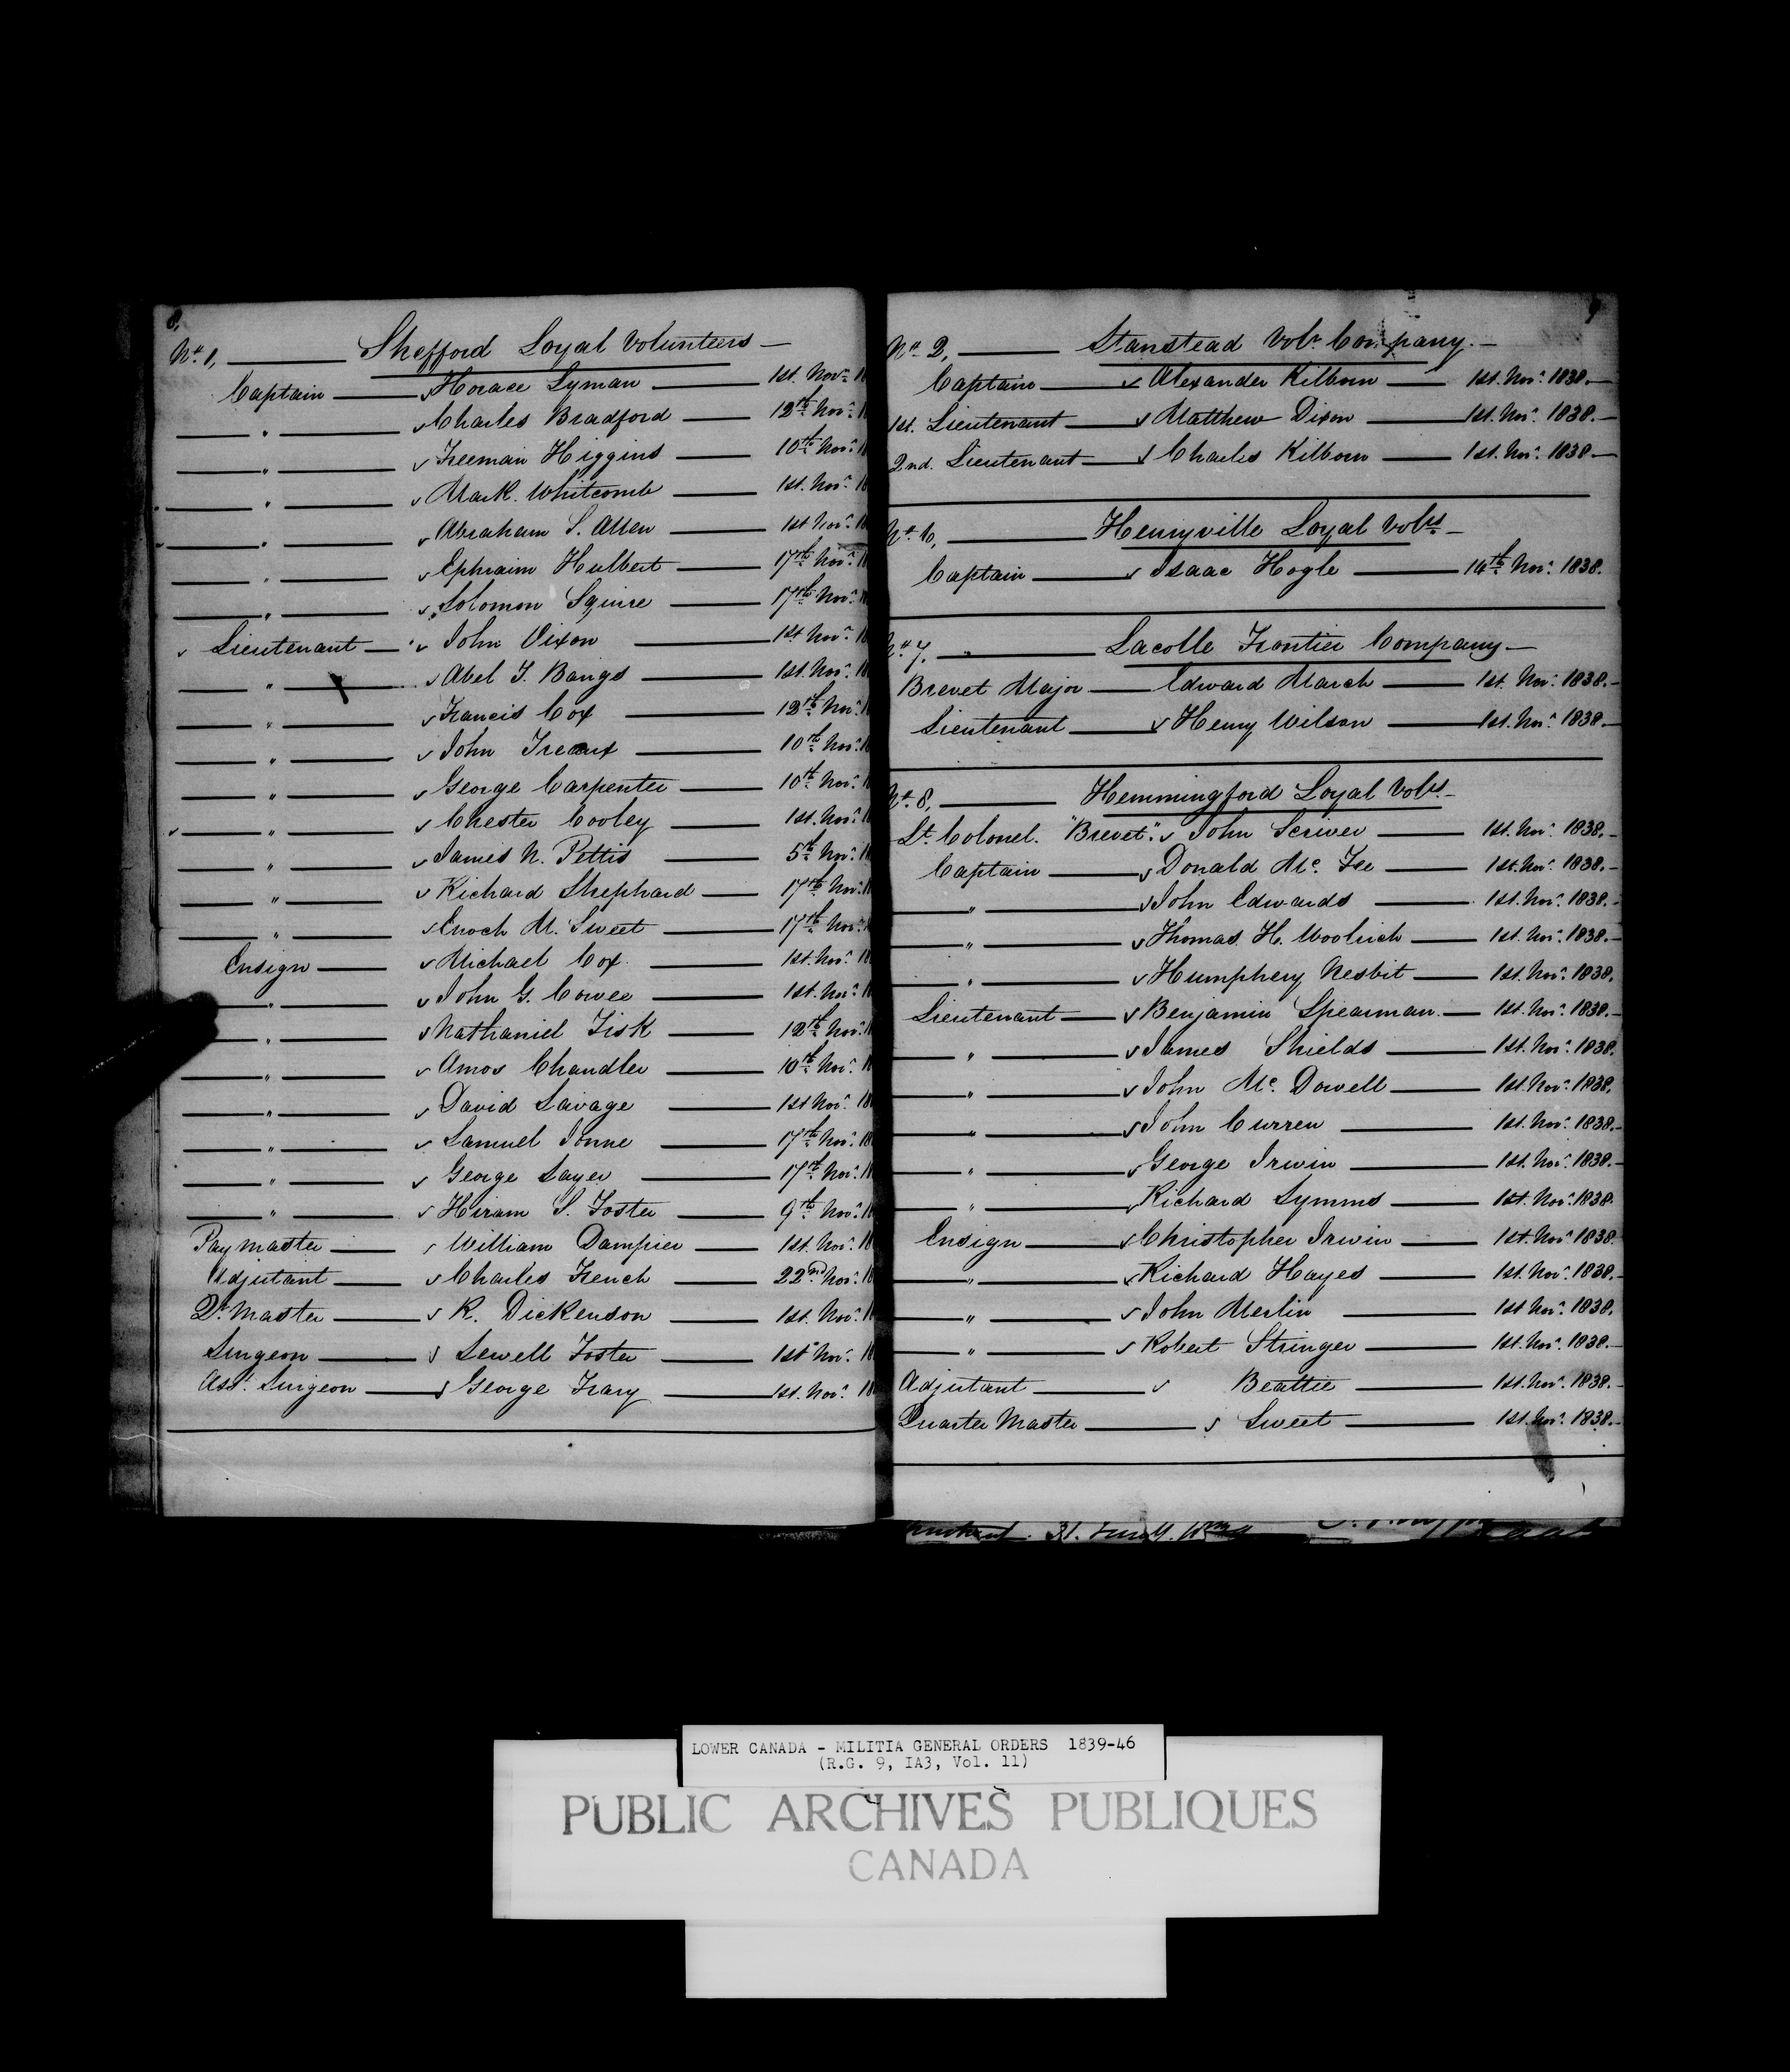 8.
No. 1, Shefford Loyal Volunteers
Captain Horace Lyman 1st. Novr. 18
" Charles Bradford 12th Novr. 18
" Freeman Higgins 10th Novr. 18
" Mark Whitcomb 1st. Novr. 18
" Abraham S. Allen 1st Novr. 18
" Ephraim Hulbert 17th Novr. 18
" Solomon Squire 17th Novr. 18
Lieutenant John Dixon 1st Novr. 18
" Abel T. Bangs 1st. Novr. 18
" Francis Cox 12th Novr. 18
" John 10th Novr. 18
" George Carpenter 10th Novr. 18
" Chester Cooley 1st. Novr. 18
" James N. Pettis 5th Novr. 18
" Richard Shephard 17th Novr. 18
" Enoch M. Sweet 17th Novr. 18
Ensign Michael Cox 1st. Novr. 18
" John G. Cowee 1st. Novr. 18
" Nathaniel Fisk 12th Novr. 18
" Amos Chandler 10th Novr. 18
" David Savage 1st Novr. 18
" Samuel 17th Novr. 18
" George Sayer 17th Novr. 18
" Hiram S. Foster 9th Novr. 18
Pay master William Dampier 1st. Novr. 18
Adjutant Charles French 22nd Novr. 18
Qr. Master R. Dickenson 1st. Novr. 18
Surgeon Sewell Foster 1st Novr. 18
Asst. Surgeon George Frary 1st. Novr. 18
9
No. 2, Stanstead Volr. Company.
Captain Alexander Kilborn 1st. Novr. 1838.
1st. Lieutenant Matthew Dixon 1st. Novr. 1838.
2nd. Lieutenant Charles Kilborn 1st. Novr. 1838
No. 6, Henryville Loyal Volrs
Captain Isaac Hogle 14th Novr. 1838.
No. 7. Lacolle Frontier Company
Brevet Major Edward March 1st. Novr. 1838.
Lieutenant Henry Wilson 1st. Novr. 1838
No. 8, Hemmingford Loyal Volrs.
Lt. Colonel. "Brevet." John Scriver 1st. Novr. 1838.
Captain Donald Mc. Fee 1st. Novr. 1838.
" John Edwards 1st. Novr. 1838.
" Thomas H. Woolrich 1st. Novr. 1838.
" Humphery Nesbit 1st. Novr. 1838.
Lieutenant Benjamin Spearman 1st. Novr. 1838.
" James Shields 1st. Novr. 1838.
" John Mc. Dowell 1st. Novr. 1838.
" John Curren 1st. Novr. 1838.
" George Irwin 1st. Novr. 1838.
" Richard Symms 1st Novr. 1838.
Ensign Christopher Irwin 1st. Novr. 1838.
" Richard Hayes 1st. Novr. 1838.
" John Merlin 1st Novr. 1838.
" Robert Stringer 1st. Novr. 1838.
Adjutant Beattie 1st. Novr. 1838.
Quarter Master Sweet 1st. Novr. 1838.
LOWER CANADA - MILITIA GENERAL ORDERS 1839-46
(R.G. 9, IA3, Vol. 11)
PUBLIC ARCHIVES PUBLIQUES
CANADA